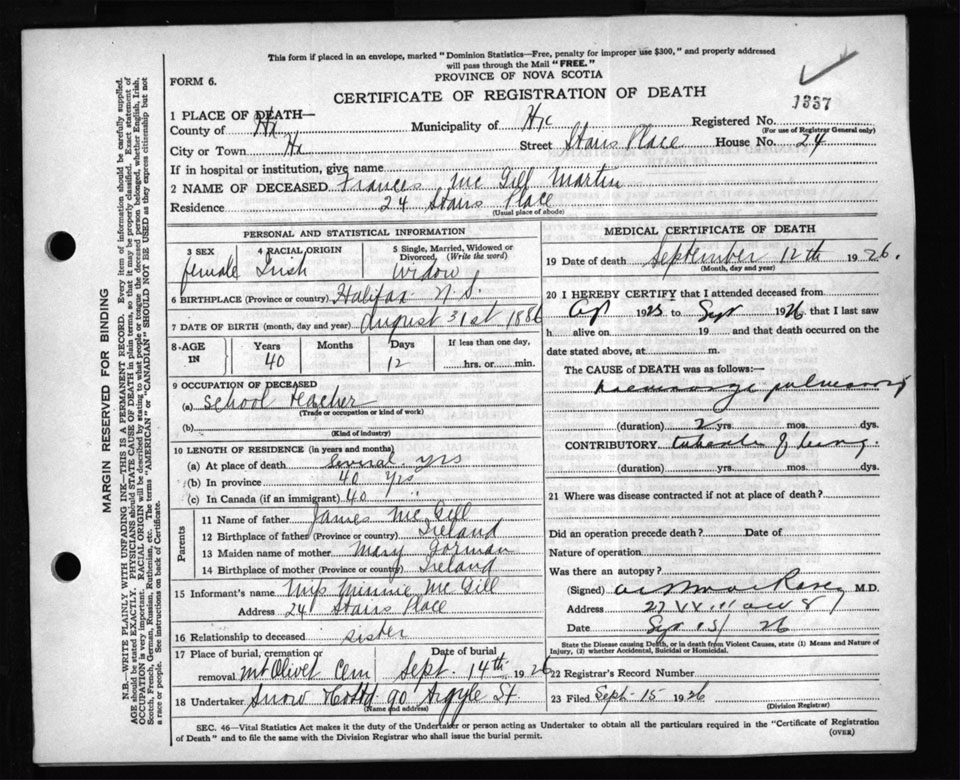 This form if placed in an envelope, marked "Dominion Statistics—Free, penalty for improper use $300," and properly addressed
will pass through the Mail "FREE."
FORM 6.
PROVINCE OF NOVA SCOTIA
CERTIFICATE OF REGISTRATION OF DEATH
1337
1 PLACE OF DEATH—
County of Hx Municipality of Hx Registered No.
(For use of Registrar General only)
City or Town Hx Street Stairs Place House No. 24
If in hospital or institution, give name
2 NAME OF DECEASED Frances Mc Gill Martin
Residence 24 Stairs Place
(Usual place of abode)
PERSONAL AND STATISTICAL INFORMATION
3 SEX 4 RACIAL ORIGIN 5 Single, Married, Widowed or Divorced, (Write the word)
female Irish Widow
6 BIRTHPLACE (Province or country) Halifax N.S.
7 DATE OF BIRTH (month, day and year) August 31st 1886
8 AGE IN Years Months Days If less than one day,
40 12 hrs. or min.
9 OCCUPATION OF DECEASED
(a) School teacher
(Trade or occupation or kind of work)
(b)
(Kind of industry)
10 LENGTH OF RESIDENCE (in years and months)
(a) At place of death several yrs
(b) In province 40 yrs
(c) In Canada (if an immigrant) 40 "
Parents
11 Name of father James Mc Gill
12 Birthplace of father (Province or country) Ireland
13 Maiden name of mother Mary Gorman
14 Birthplace of mother (Province or country) Ireland
15 Informant's name Miss Minnie Mc Gill
Address 24 Stairs Place
16 Relationship to deceased sister
17 Place of burial, cremation or removal Date of burial
Mt Olivet Cem Sept. 14th 1926
18 Undertaker Snow 90 Argyle St
(Name and address)
MEDICAL CERTIFICATE OF DEATH
19 Date of death September 12th 1926.
(Month, day and year)
20 I HEREBY CERTIFY that I attended deceased from
1925 to Sept 1926 that I last saw
h alive on 19 and that death occurred on
date stated above, at m.
The CAUSE of DEATH was as follows:—
haemorrhage pulmonary
(duration) 2 yrs. mos. dys.
CONTRIBUTORY of lung.
(duration) yrs. mos. dys.
21 Where was disease contracted if not at place of death?
Did an operation precede death? Date of
Nature of operation
Was there an autopsy?
(Signed) M.D.
Address
Date Sept 13/26
State the Disease causing Death, or in death from Violent Causes, state (1) Means and Nature of
Injury, (2) whether Accidental, Suicidal or Homicidal.
22 Registrar's Record Number
23 Filed Sept-15 1926
(Division Registrar)
SEC. 46—Vital Statistics Act makes it the duty of the Undertaker or person acting as Undertaker to obtain all the particulars required in the "Certificate of Registration
of Death" and to file the same with the Division Registrar who shall issue the burial permit.
(OVER)
MARGIN RESERVED FOR BINDING
N.B.—WRITE PLAINLY WITH UNFADING INK—THIS IS A PERMANENT RECORD. Every item of information should be carefully supplied.
AGE should be stated EXACTLY. PHYSICIANS should STATE CAUSE OF DEATH in plain terms, so that it may be properly classified. Exact statement of
OCCUPATION is very important. RACIAL ORIGIN will be described by stating to what people or tongue the deceased person belonged, whether English, Irish,
Scotch, French, German, Russian, Ruthenian, etc. The terms "AMERICAN" or "CANADIAN" SHOULD NOT BE USED as they express citizenship but not
a race or people. See instructions on back of Certificate.